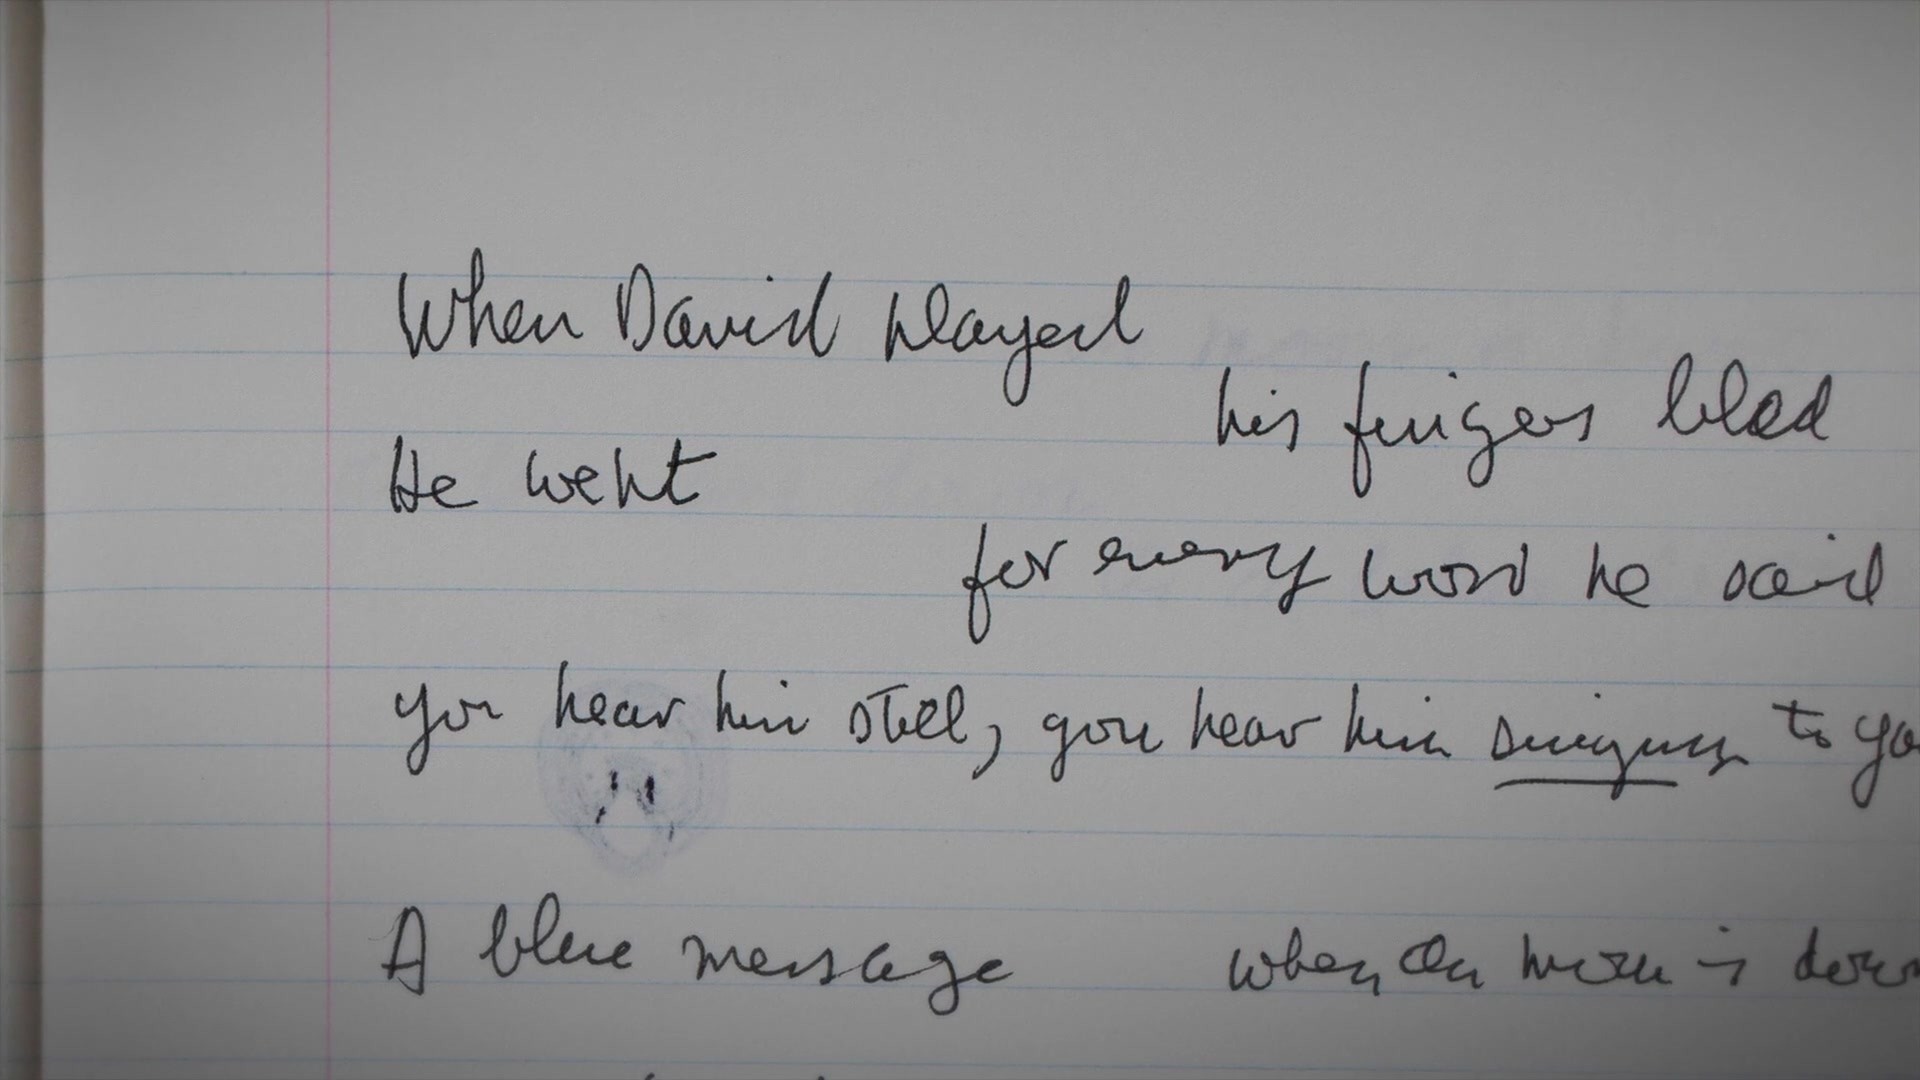 When David played
his fingers bled
He wept
for every word he said
you hear him still, you hear him singing to yo
A blue message when the moon is down